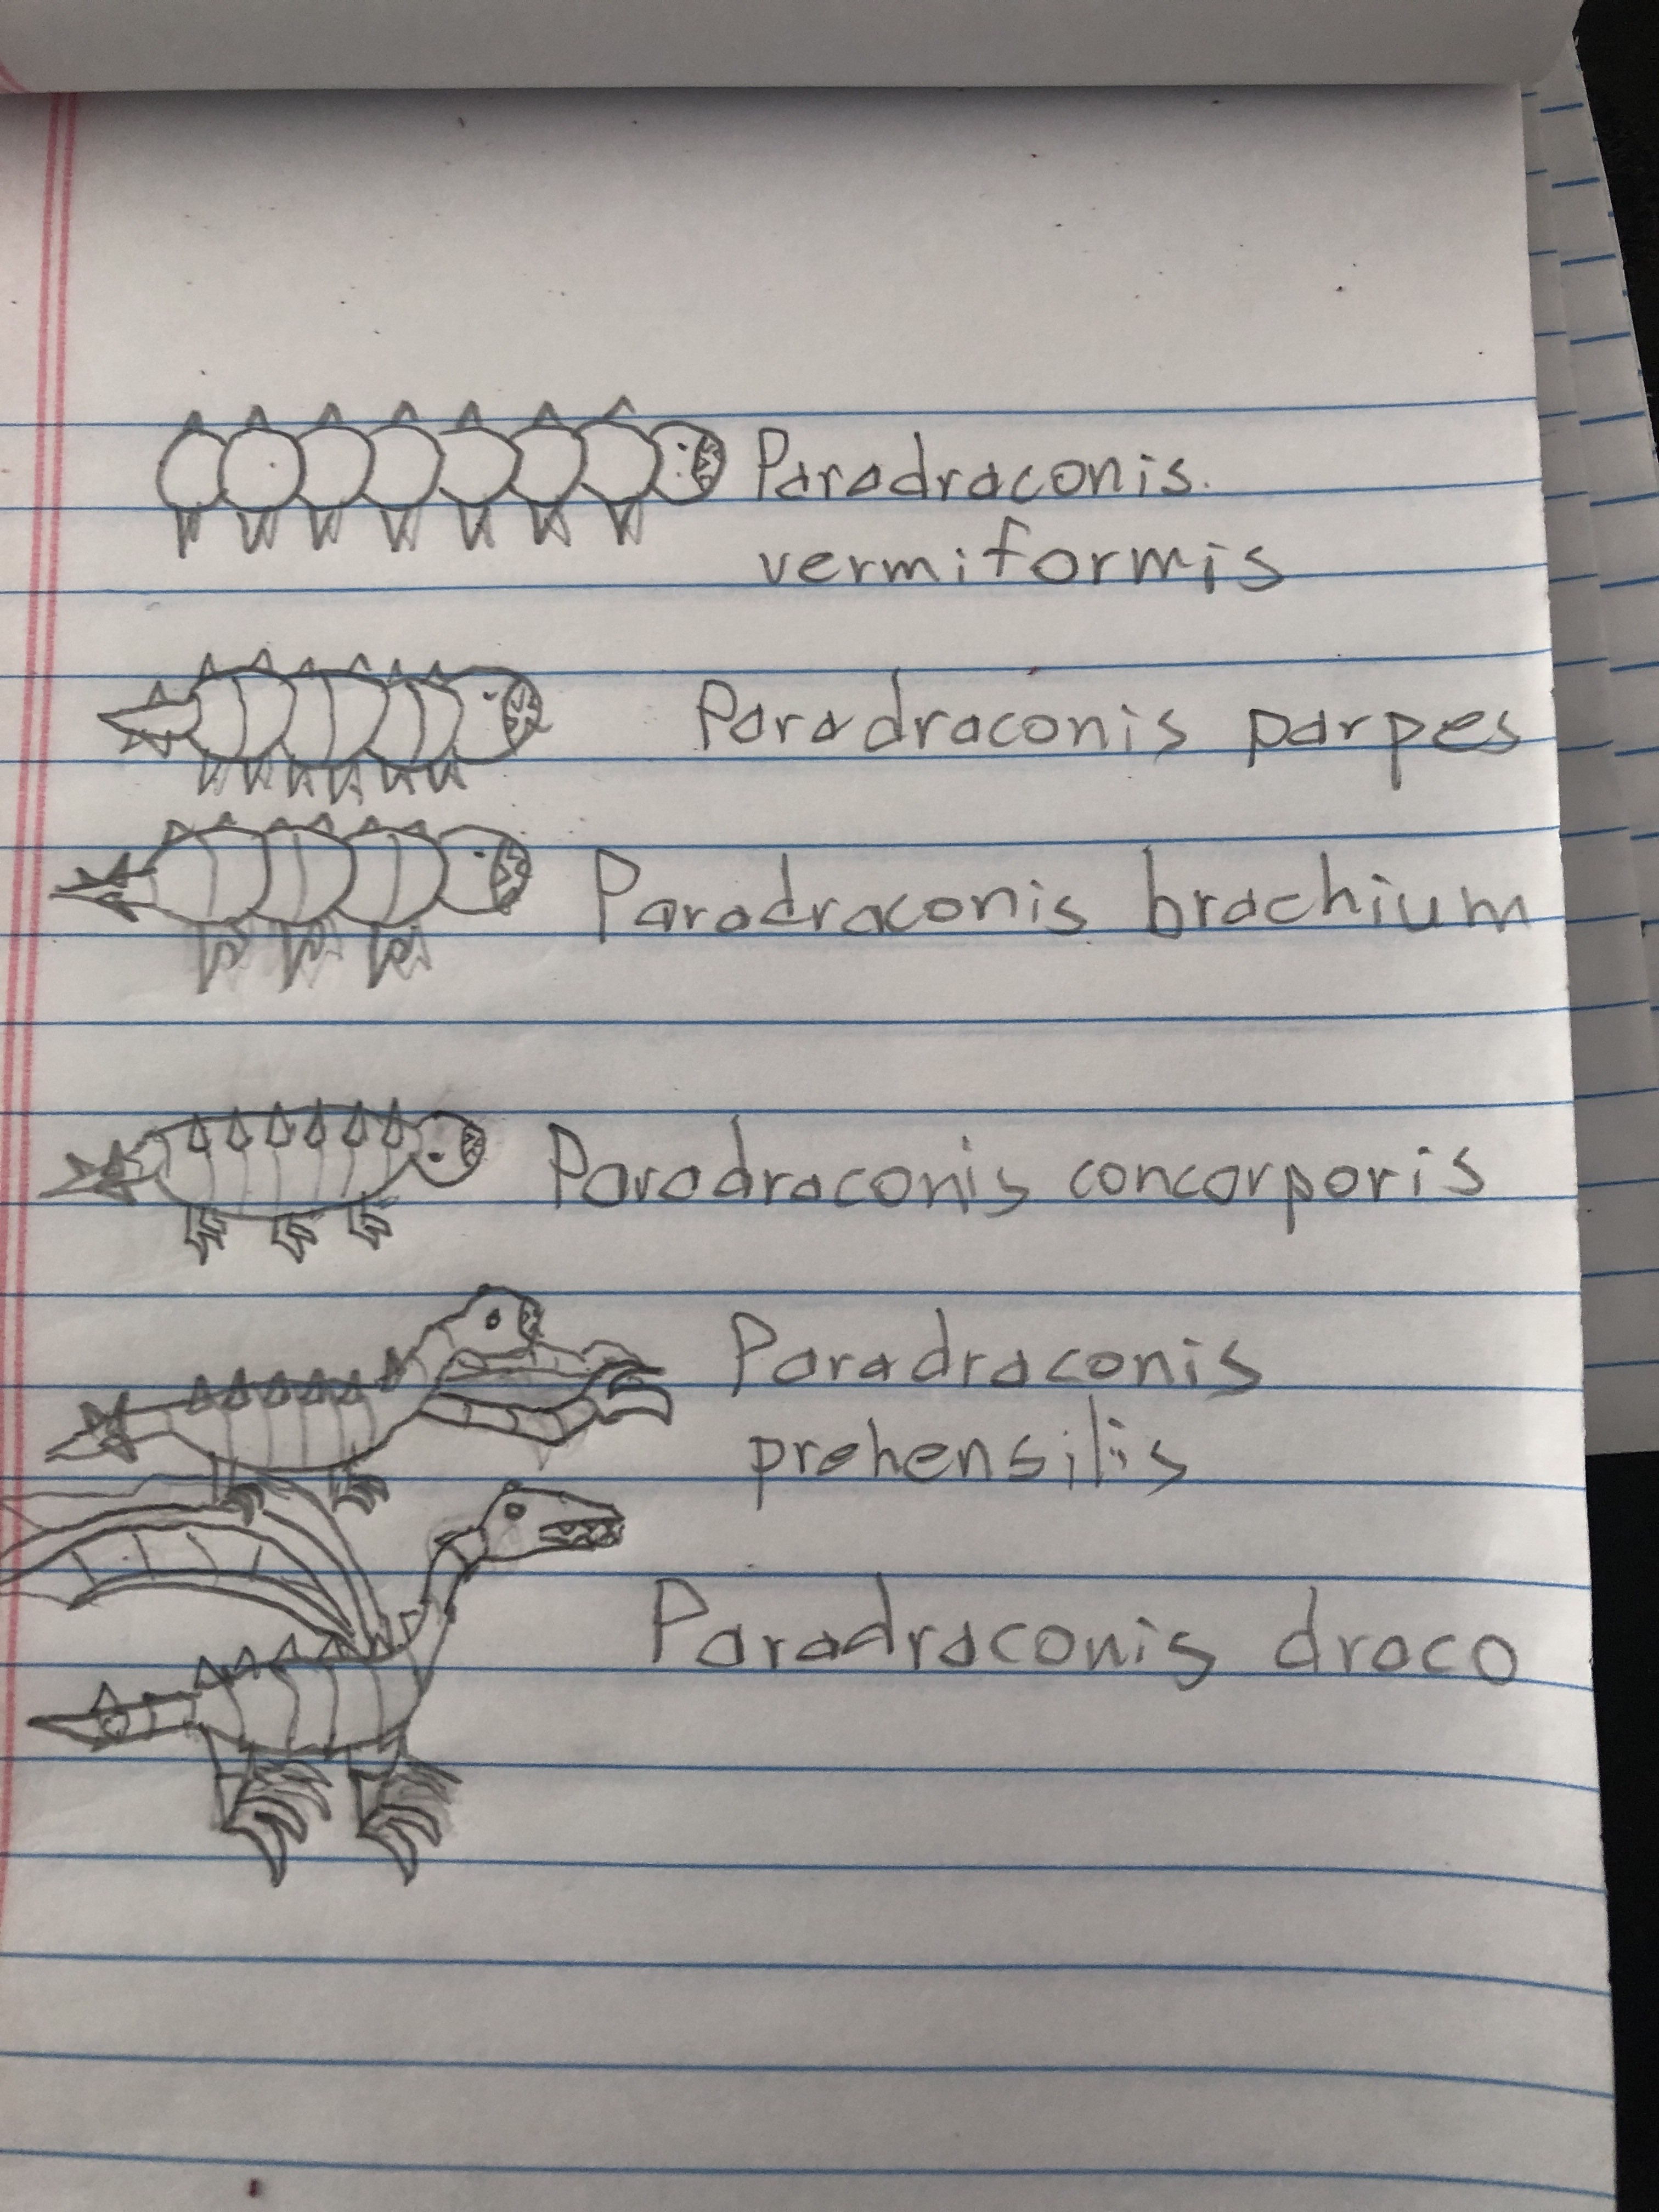 Paradraconis
vermiformis
Paradraconis parpes
Paradraconis brachium
Paradraconis concorporis
Paradraconis
prehensilis
Paradraconis draco